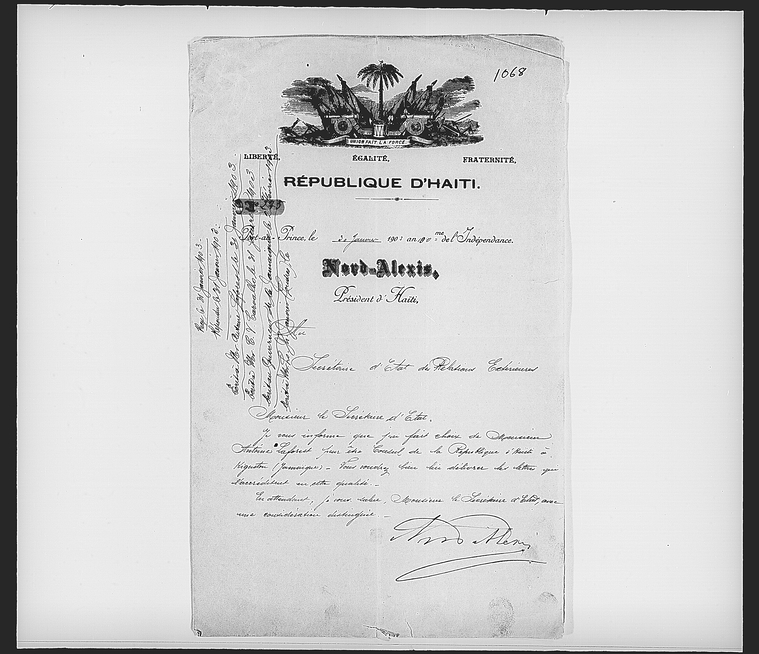 1068
UNION FAIT LA FORCE
LIBERTÉ, ÉGALITÉ, FRATERNITÉ,
RÉPUBLIQUE D'HAITI.
Port-au-Prince, le Janvier 190 an de l'Indépendance.
Nord-Alexis,
Président d'Haïti,
Au
Secrétaire d'Etat des Relations Extérieures
Monsieur le Secrétaire d'Etat.
Je vous informe que j'ai fait choix de Monsieur
Antoine Laforest pour être Consul de la République d'Haïti à
Kingston (Jamaïque) - Vous voudrez bien lui délivrer les lettres qui
l'accréditent en cette qualité -
En attendant, je vous salue, Monsieur le Secrétaire d'Etat, avec
une considération distinguée -
Nord Alexis
Reçu le 31 Janvier 1903
Répondu le 31 Janvier 1903
Ecrit à Mr Antoine Laforest le 31 Janvier 1903
Ecrit à Mr le 31 1903
Ecrit au Gouverneur de la Jamaïque le Février 1903